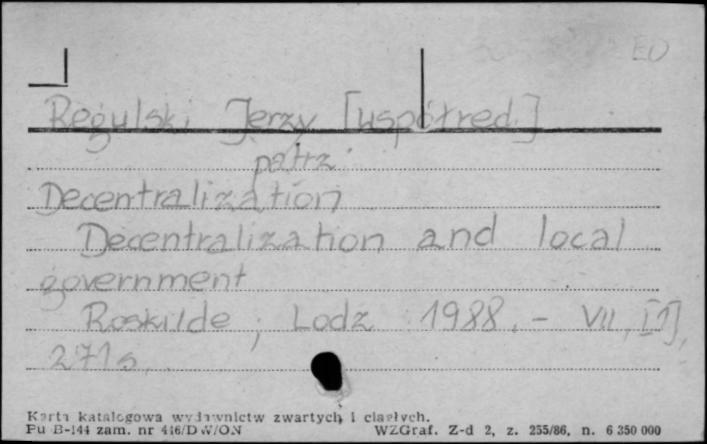 EU
Regulski Jerzy [współred.]
patrz:
Decentralization
Decentralization and local
government
Roskilde ; Lodz 1988. - VII, [1],
271 s.
Karta katalogowa wydawnictw zwartych i ciągłych.
Pu B-144 zam. nr 416/DW/ON WZGraf. Z-d 2, z. 255/86, n. 6 350 000